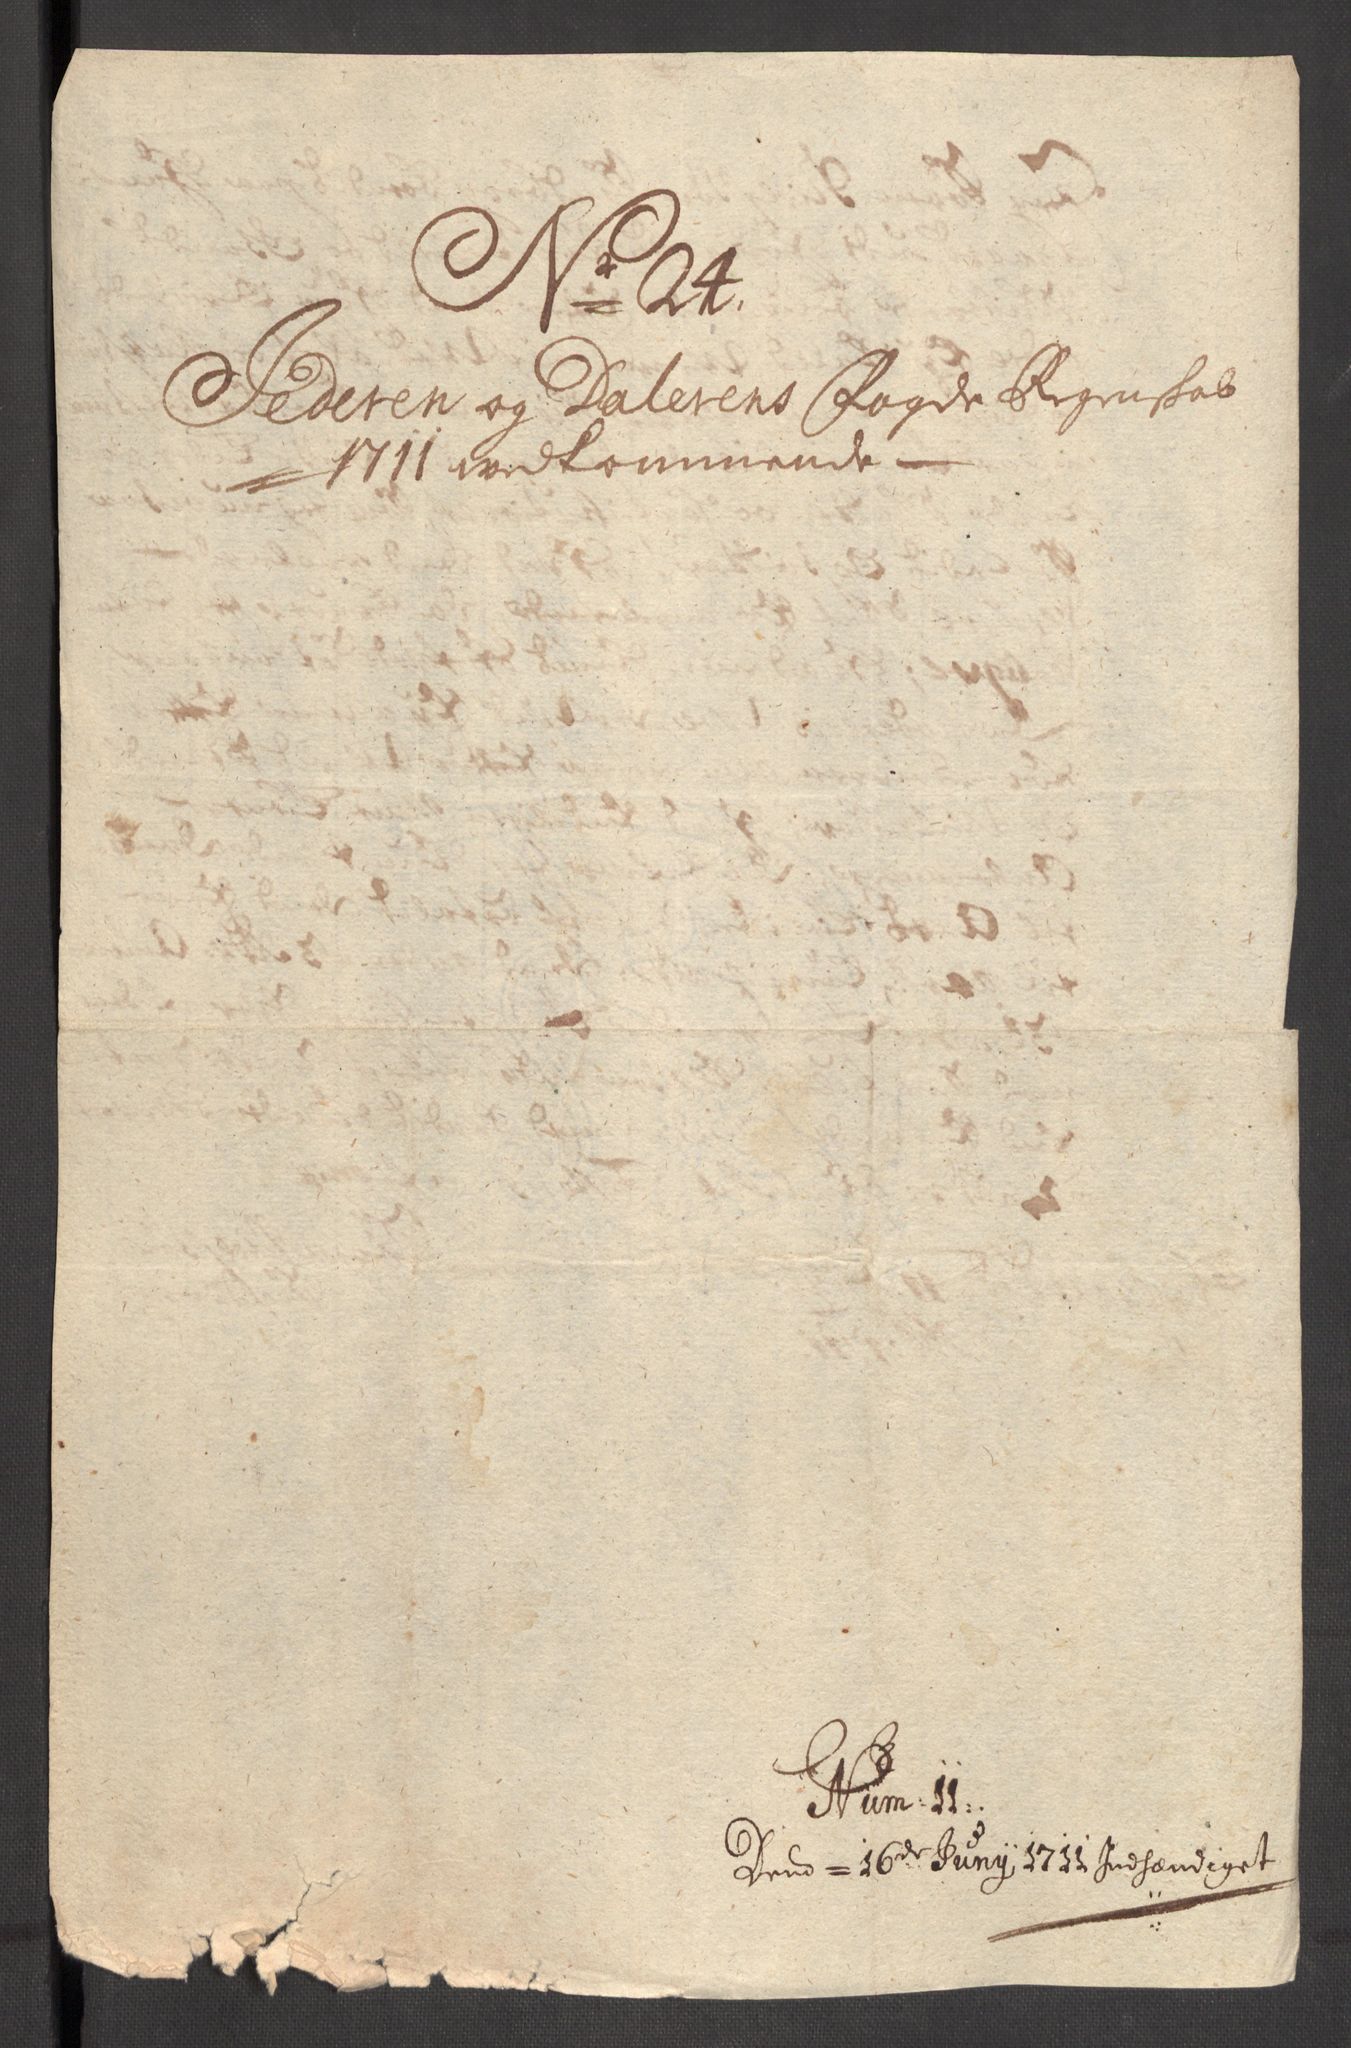 No 24.
Jederen og Dalerens Fogde Regenskab
1711 vedkommende
Num: 11:
Dend = 16de Juny 1711 Indhændiget